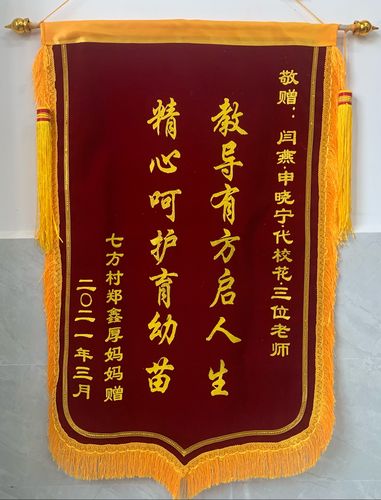 敬赠：闫燕·申晓宁代校花·三位老师
教导有方启人生
精心呵护育幼苗
七方村郑鑫厚妈妈赠
二〇二一年三月